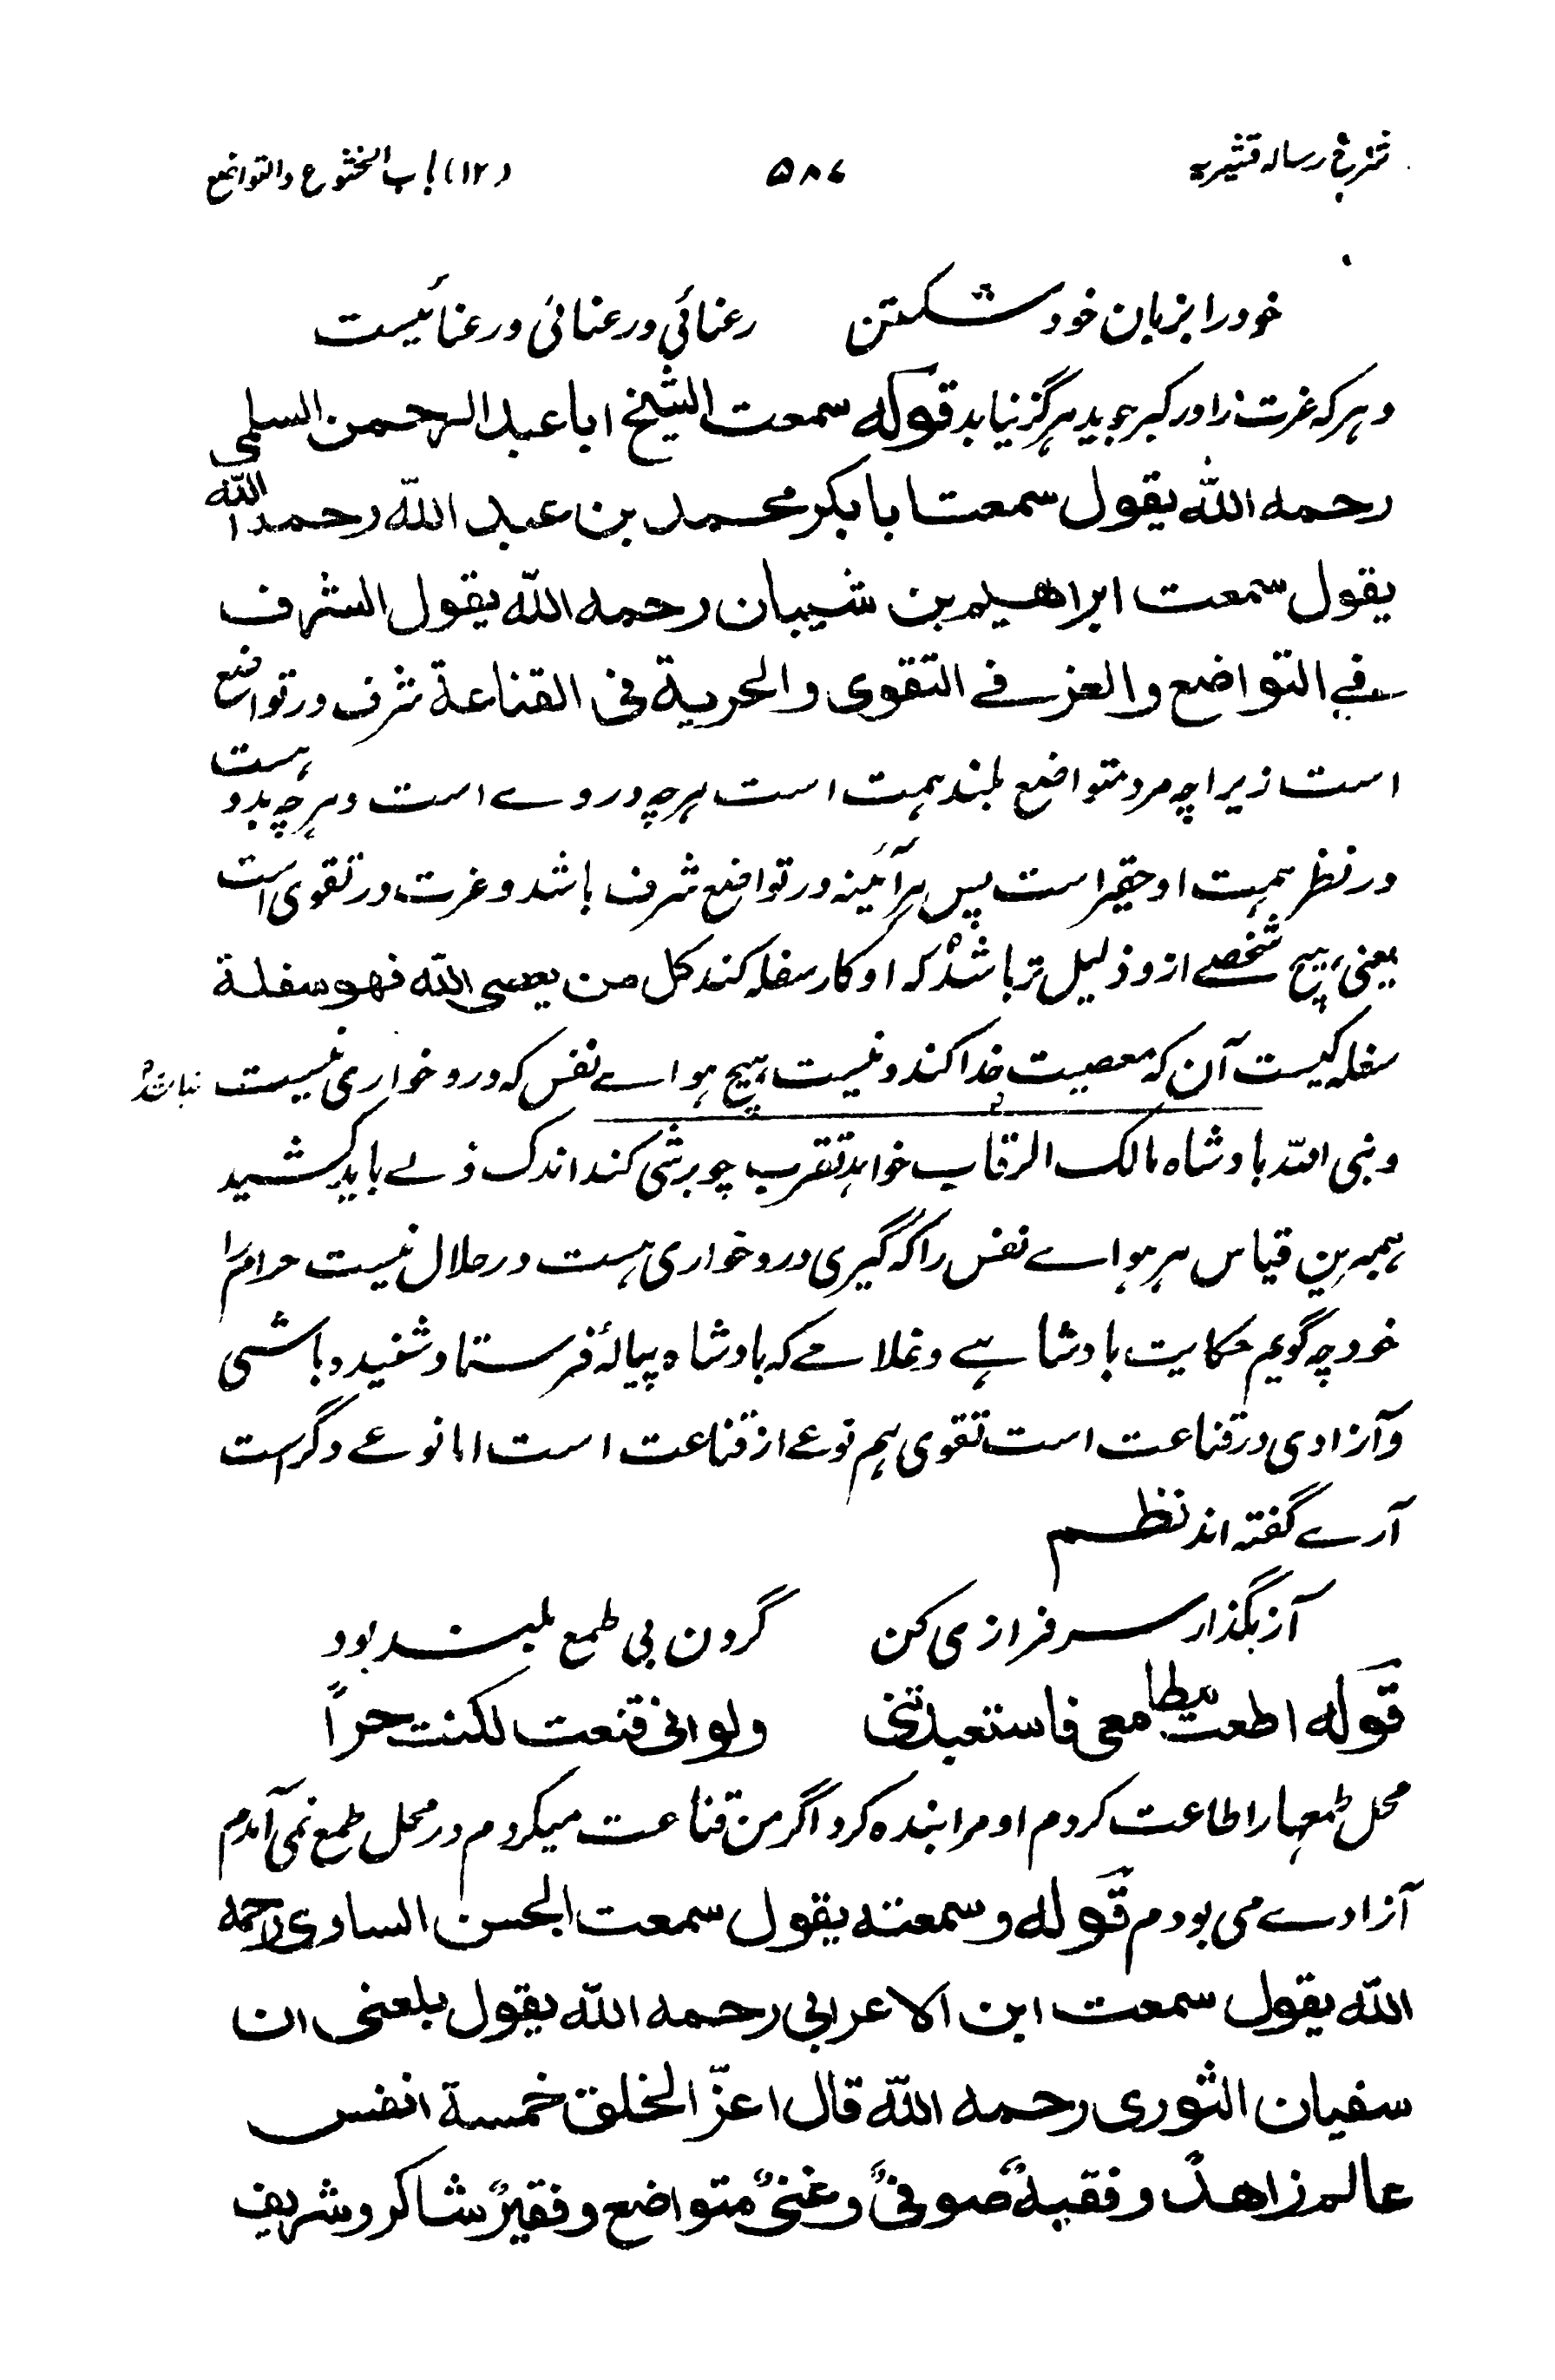 شرح رسالہ قشیریہ ۵۸۷ (۱۲) باب الخشوع والتواضع
خود را بزبان خود شکستن رعنائی و رعنائی و رعنائیست
و ہر کہ عزت را در کبر جوید ہرگز نیابد قولہ سمعت الشیخ ابا عبد الرحمن السلمی
رحمہ اللہ یقول سمعت ابا بکر محمد بن عبد اللہ رحمہ اللہ
یقول سمعت ابراھیم بن شیبان رحمہ اللہ یقول الشرف
فے التواضع والعز فے التقوی والحریۃ فی القناعۃ شرف در تواضع
است زیراچہ مرد متواضع بلند ہمت است ہرچہ در وے است و ہرچہ بدو ہست
در نظر ہمت او حقیر است پس ہر آئینہ در تواضع شرف باشد و عزت در تقوی است
یعنی ہیچ شخصے ازو ذلیل تر باشد کہ او کار سفلہ کند کل من یعصی اللہ فھو سفلۃ
سفلہ کیست آن کہ معصیت خدا کند و نیست ہیچ ہواے نفس کہ درو خواری نیست نباشد
و نبی اللہ بادشاہ مالک الرقاب خواہد تقرب چو برشی کند اندک ذلے باید کشید
ہمبرین قیاس ہر ہواے نفس را کہ گیری درو خواری ہست در حلال نیست حرام را
خود چہ گویم حکایت بادشاہے و غلامے کہ بادشاہ پیالہٴ فرستاد شنیدہ باشی
و آزادی در قناعت است تقوی ہم نوعے از قناعت است اما نوعے دگر است
آرے گفتہ اند نظم
آز بگذار سرفرازی کن گردن بی طمع بلند بود
قولہ اطعت مطامعی فاستعبدتنی ولو انی قنعت لکنت حراً
محل طمعہا را طاعت کردم او مرا بندہ کرد اگر من قناعت میکردم در محل طمع نمی آمدم
آزادے می بودم قولہ وسمعتہ یقول سمعت ابالحسن الساوی رحمہ
اللہ یقول سمعت ابن الاعرابی رحمہ اللہ یقول بلغنی ان
سفیان الثوری رحمہ اللہ قال اعزّ الخلق خمسۃ انفس
عالم زاھدٌ وفقیہٌ صوفیٌ وغنیٌ متواضع وفقیرٌ شاکر وشریف